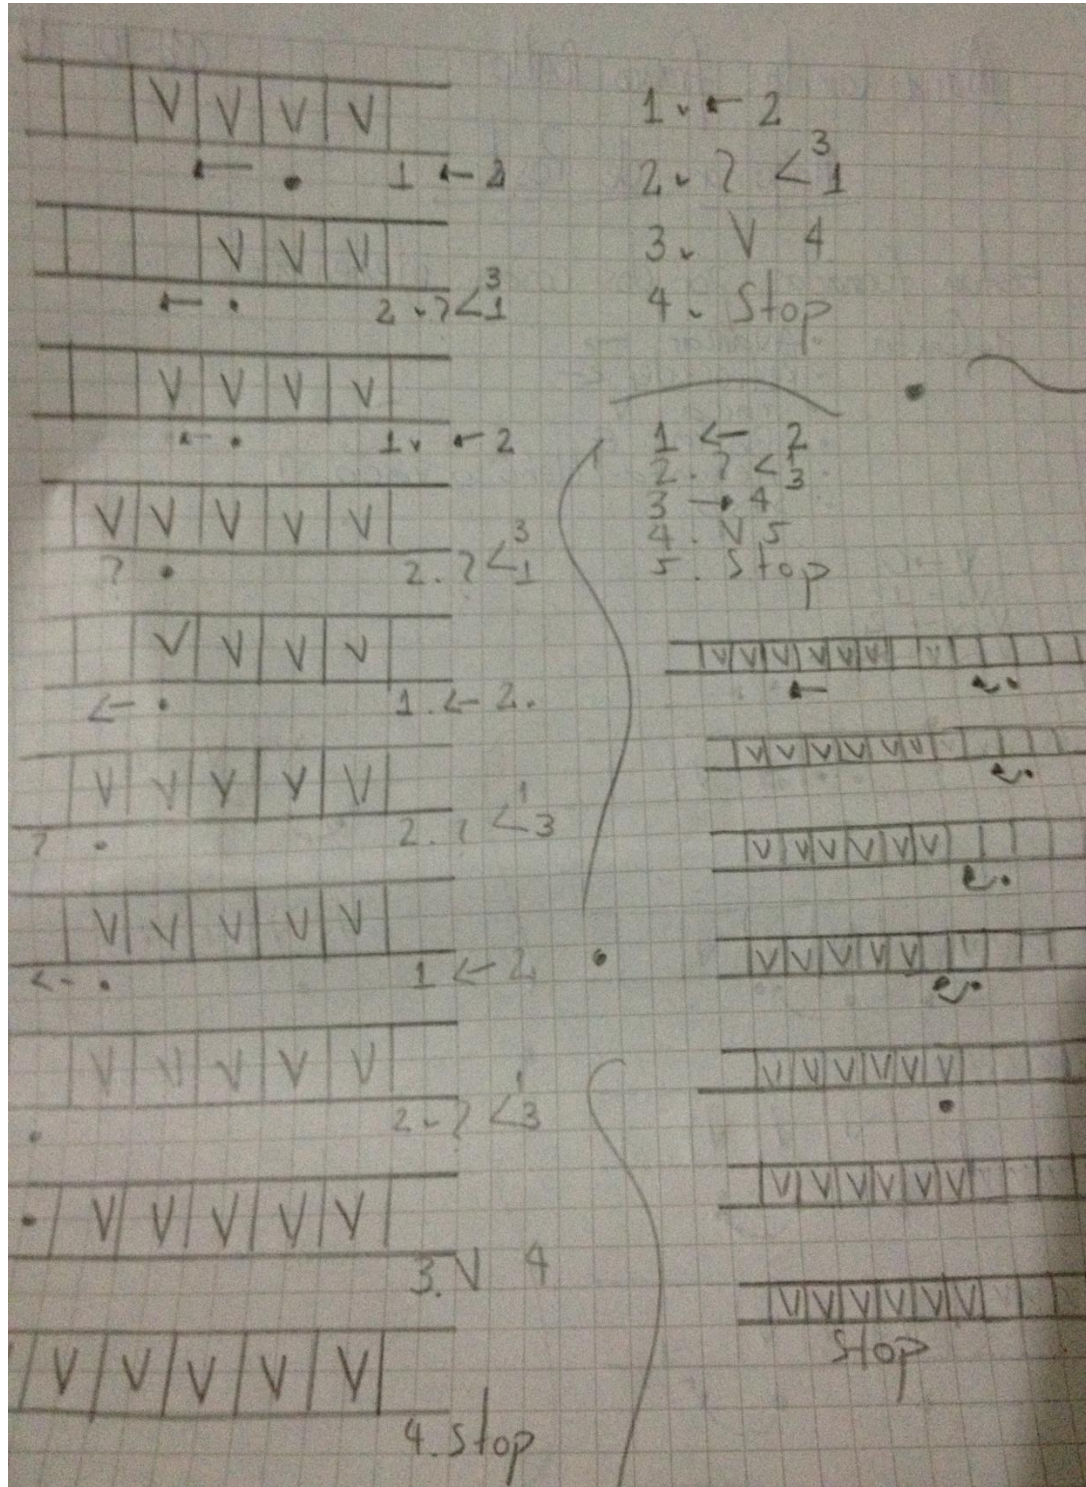 V V V V
1 ← 2
V V V
2 . ? < 3 1
V V V V
1 . ← 2
V V V V V
?
2 . ? < 3 1
V V V V
1 . ← 2 .
V V V V V
?
2 . ? < 1 3
V V V V V
1 ← 2
V V V V V
2 . ? < 1 3
V V V V V
3. V 4
V V V V V
4. Stop
1 . ← 2
2 . ? < 3 1
3 . V 4
4 . Stop
1 ← 2
2 . ? < 1 3
3 → 4
4 . V 5
5 . Stop
V V V V V V V
V V V V V V
V V V V V V
V V V V V V
V V V V V V
V V V V V V
V V V V V V
Stop